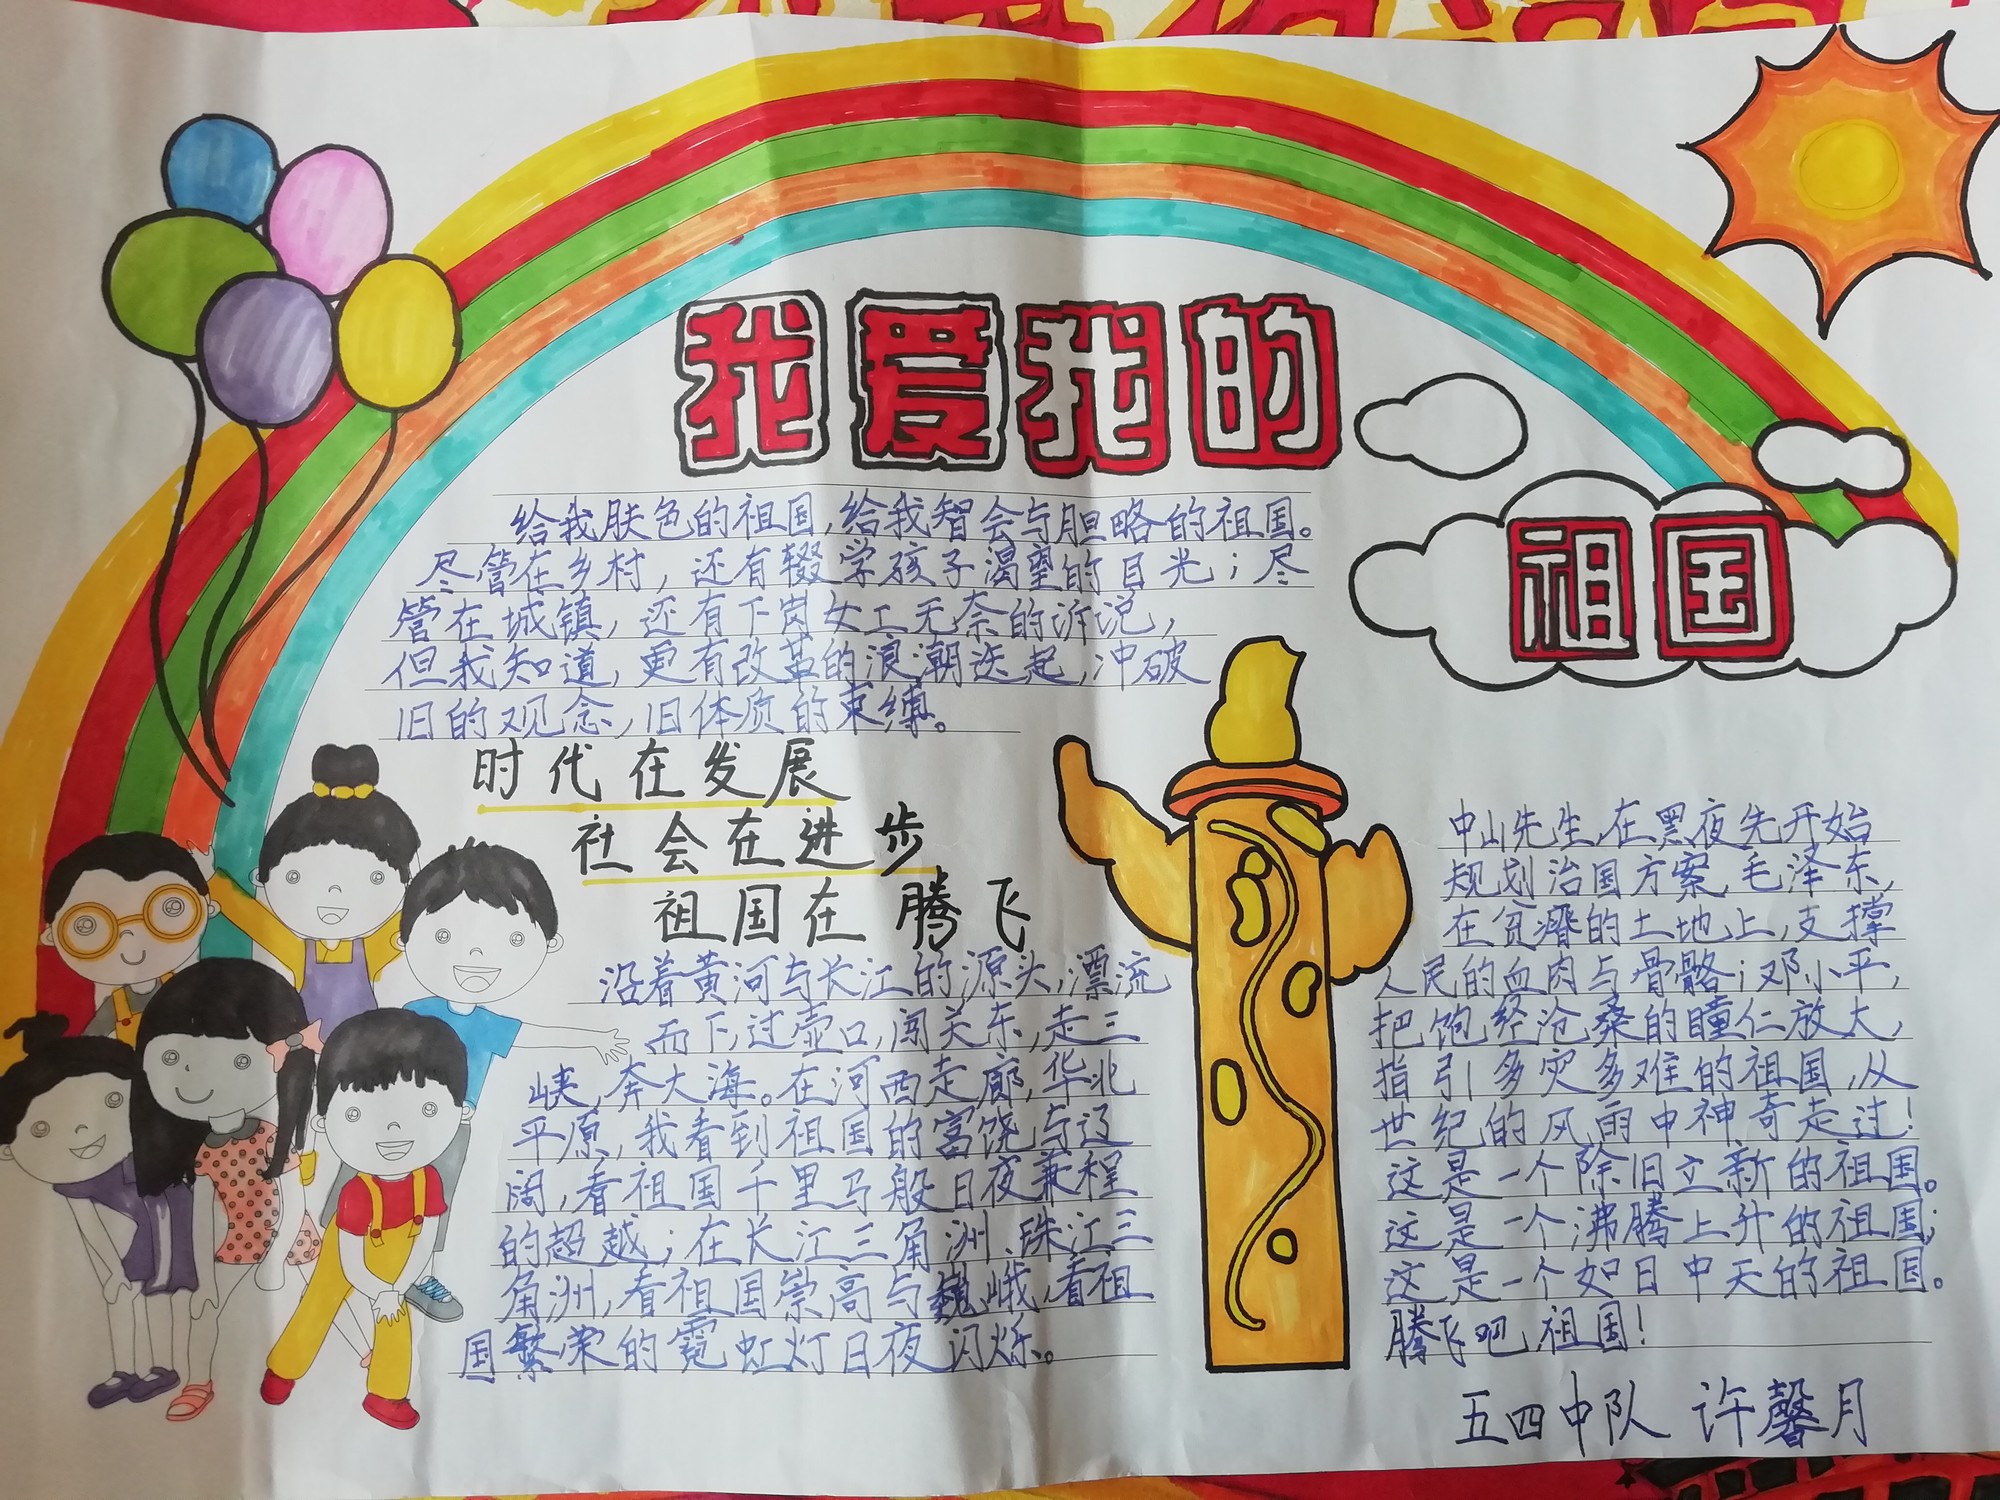 我爱我的
祖国
给我肤色的祖国,给我智会与胆略的祖国。
尽管在乡村,还有辍学孩子渴望的目光;尽
管在城镇,还有下岗女工无奈的诉说,
但我知道,更有改革的浪潮迭起,冲破
旧的观念,旧体质的束缚。
时代在发展
社会在进步
祖国在腾飞
沿着黄河与长江的源头,漂流
而下,过壶口,闯关东,走三
峡,奔大海。在河西走廊,华北
平原,我看到祖国的富饶与辽
阔,看祖国千里马般日夜兼程
的超越;在长江三角洲、珠江三
角洲,看祖国崇高与巍峨,看祖
国繁荣的霓虹灯日夜闪烁。
中山先生,在黑夜先开始
规划治国方案,毛泽东,
在贫瘠的土地上,支撑
人民的血肉与骨骼;邓小平,
把饱经沧桑的瞳仁放大,
指引多灾多难的祖国,从
世纪的风雨中神奇走过!
这是一个除旧立新的祖国。
这是一个沸腾上升的祖国;
这是一个如日中天的祖国。
腾飞吧,祖国!
五四中队 许馨月